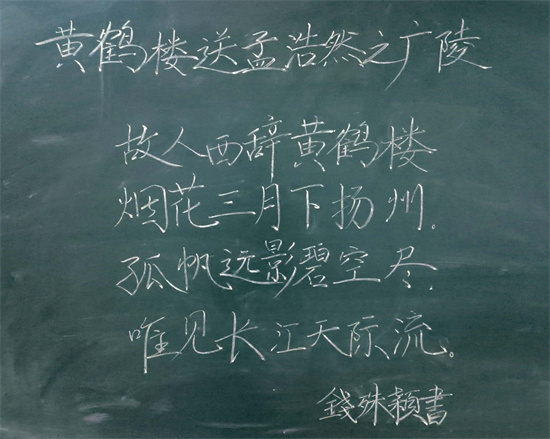 黄鹤楼送孟浩然之广陵
故人西辞黄鹤楼
烟花三月下扬州。
孤帆远影碧空尽.
唯见长江天际流。
錢殊颖書